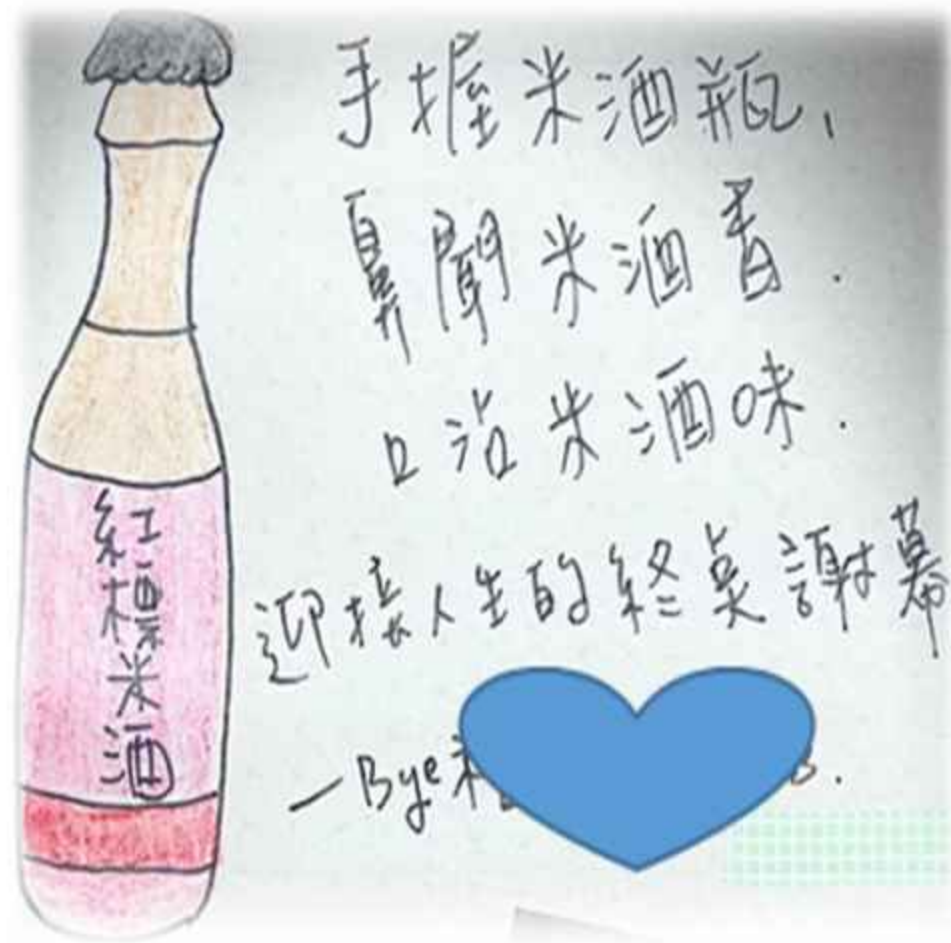 紅標米酒
手握米酒瓶、
鼻聞米酒香.
口沾米酒味.
迎接人生的終点謝幕
—Bye